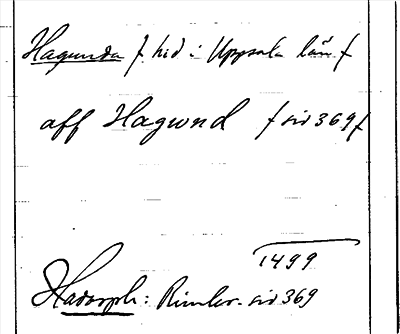 Hagunda / hd i Uppsala län /
aff Hagund / sid 369 /
1499
Hadorph: Rimkr. sid 369